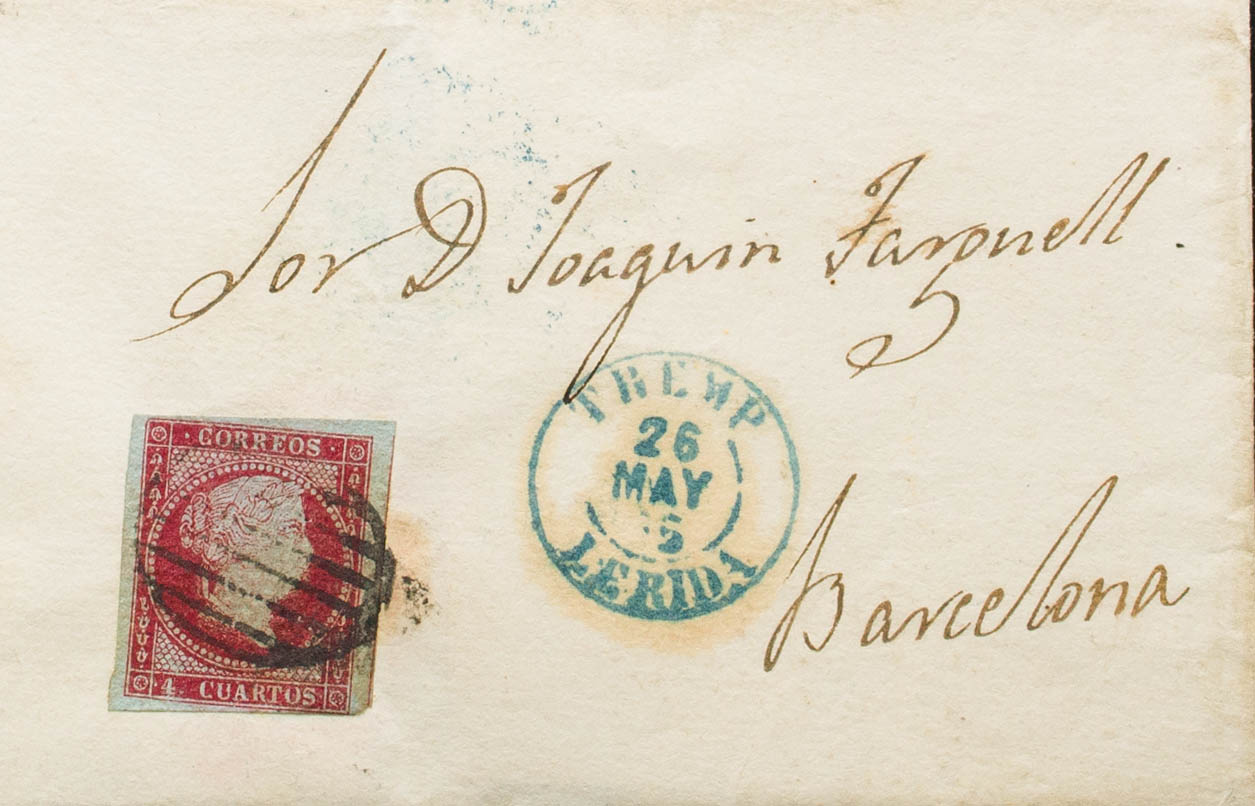 Sor D Joaquin Faronell.
Barcelona
TREMP
26
MAY
5
LERIDA
CORREOS
4 CUARTOS